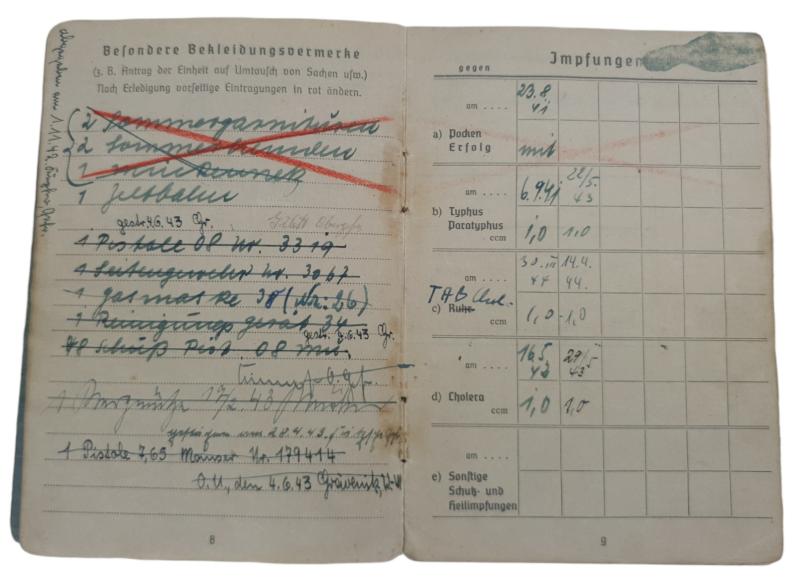 abgegeben am 1.11.43.
Besondere Bekleidungsvermerke
(z. B. Antrag der Einheit auf Umtausch von Sachen usw.)
Nach Erledigung vorseitige Eintragungen in rot ändern.
2 Sommergarnituren
2 Sommerhemden
1 Mückennetz
1 Zeltbahn
gestr. 4.6.43 Gr.
1 Pistole 08 Nr. 3319
1 Seitengewehr Nr. 3067
1 Gasmaske 38 (Nr: 26)
1 Reinigungsgerät 34
gestr. 4.6.43 Gr.
48 Schuß Pist. 08 Mun.
1 Bergmütze
28.4.43.
1 Pistole 7,65 Mauser Nr. 179414
O.U., den 4.6.43
8
Impfungen
gegen
am . . . . 23.8 41
a) Pocken
Erfolg mit
am . . . . 6.9.41 22/5. 43
b) Typhus
Paratyphus
ccm 1,0 1,0
am . . . . 30.III 44 14.4. 44.
TAB Chol.
c) Ruhr
ccm 1,0 1,0
am . . . . 16.5 42 29/5 43
d) Cholera
ccm 1,0 1,0
am . . . .
e) Sonstige
Schutz- und
Heilimpfungen
9